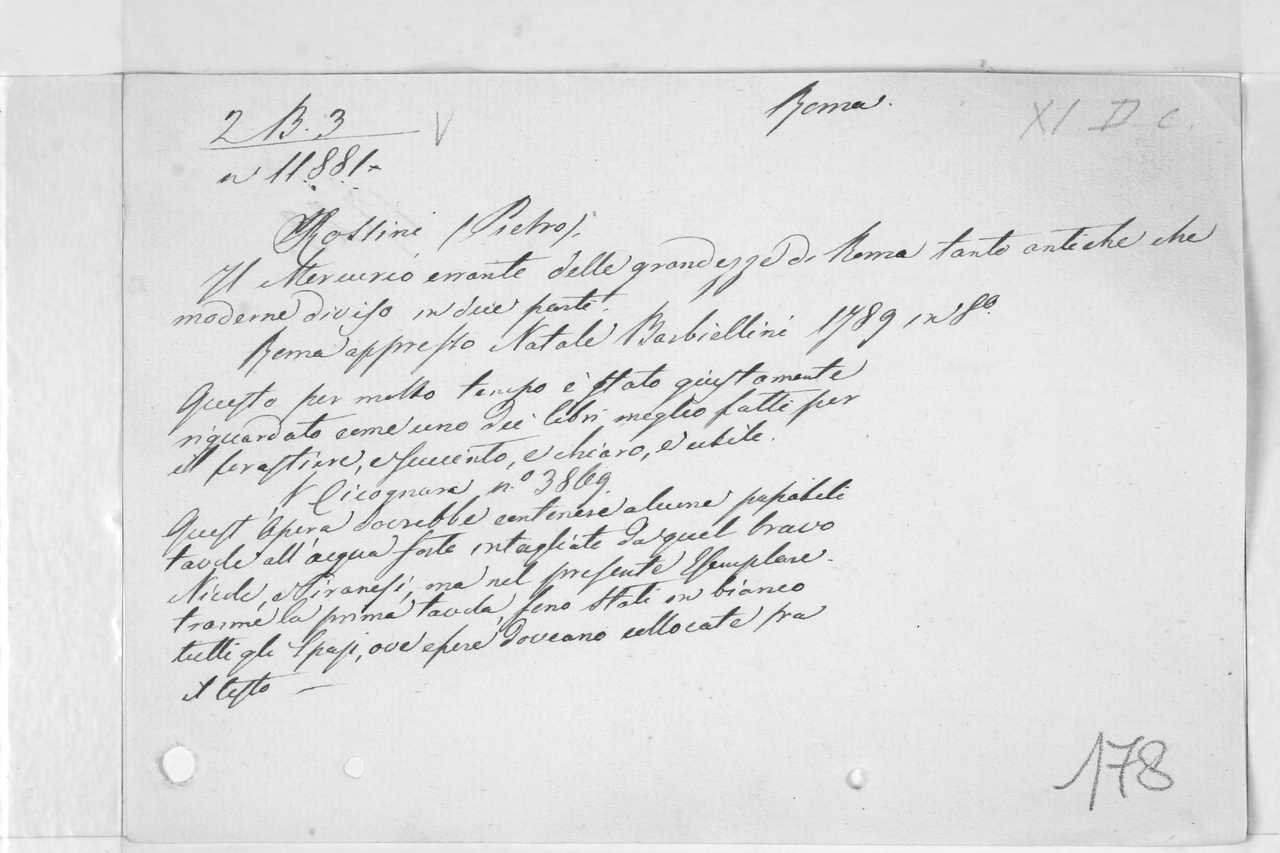 2 B. 3
V
Roma.
XI D c.
n 11881
Rossini (Pietro).
Il Mercurio errante delle grandezze di Roma tanto antiche che
moderne diviso in due parti.
Roma appresso Natale Barbiellini 1789 in 8.º
Questo per molto tempo è stato giustamente
riguardato come uno dei libri meglio fatti per
il forastiere, è succinto, è chiaro, è utile.
V Cicognara n.º 3869
Quest'Opera dovrebbe contenere alcune passabili
tavole all'acqua forte intagliate da quel bravo
Nicole, e Piranesi, ma nel presente Esemplare
tranne la prima tavola, sono stati in bianco
tutti gli spazj, ove essere doveano collocate fra
il testo —
178